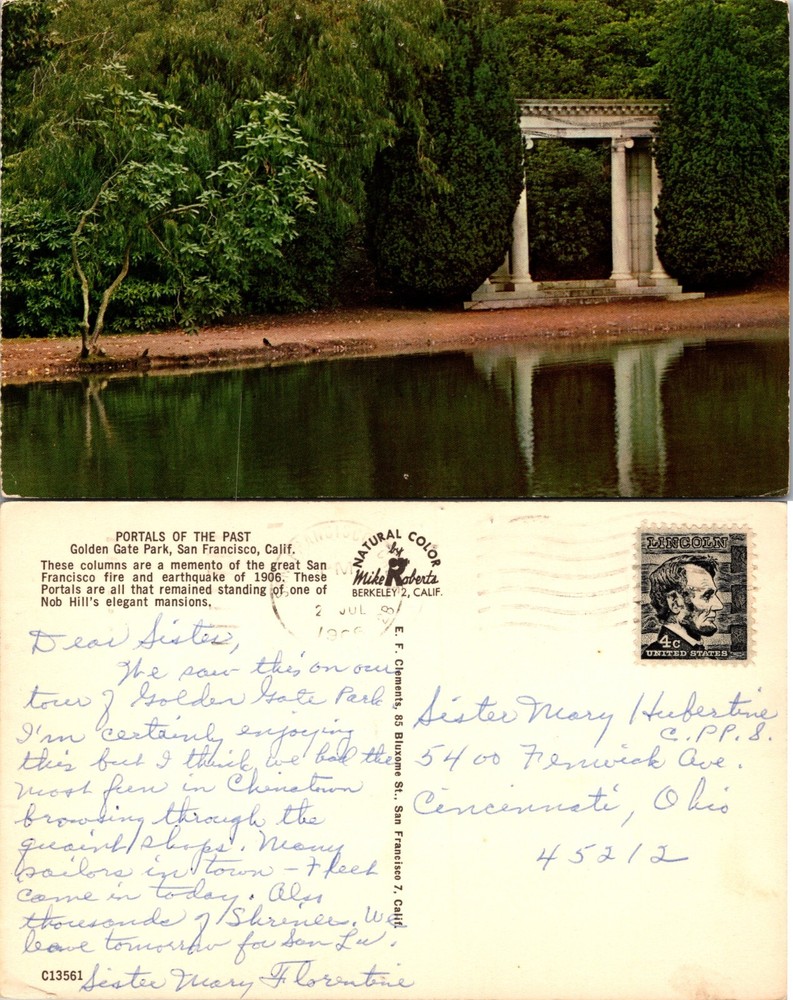 PORTALS OF THE PAST
Golden Gate Park, San Francisco, Calif.
These columns are a memento of the great San
Francisco fire and earthquake of 1906. These
Portals are all that remained standing of one of
Nob Hill's elegant mansions.
NATURAL COLOR
Mike Roberts
BERKELEY 2, CALIF.
2 JUL
LINCOLN
4c
UNITED STATES
Dear Sister,
We saw this on our
tour of Golden Gate Park
I'm certainly enjoying
this but I think we had the
most fun in Chinatown
browsing through the
quaint shops. Many
sailors in town - Fleet
came in today. Also
thousands of Shriners. We
leave tomorrow for San Lu.
Sister Mary Florentine
C13561
E. F. Clements, 85 Bluxome St., San Francisco 7, Calif.
Sister Mary Hubertine
C.PP.S.
5400 Fenwick Ave.
Cincinnati, Ohio
45212